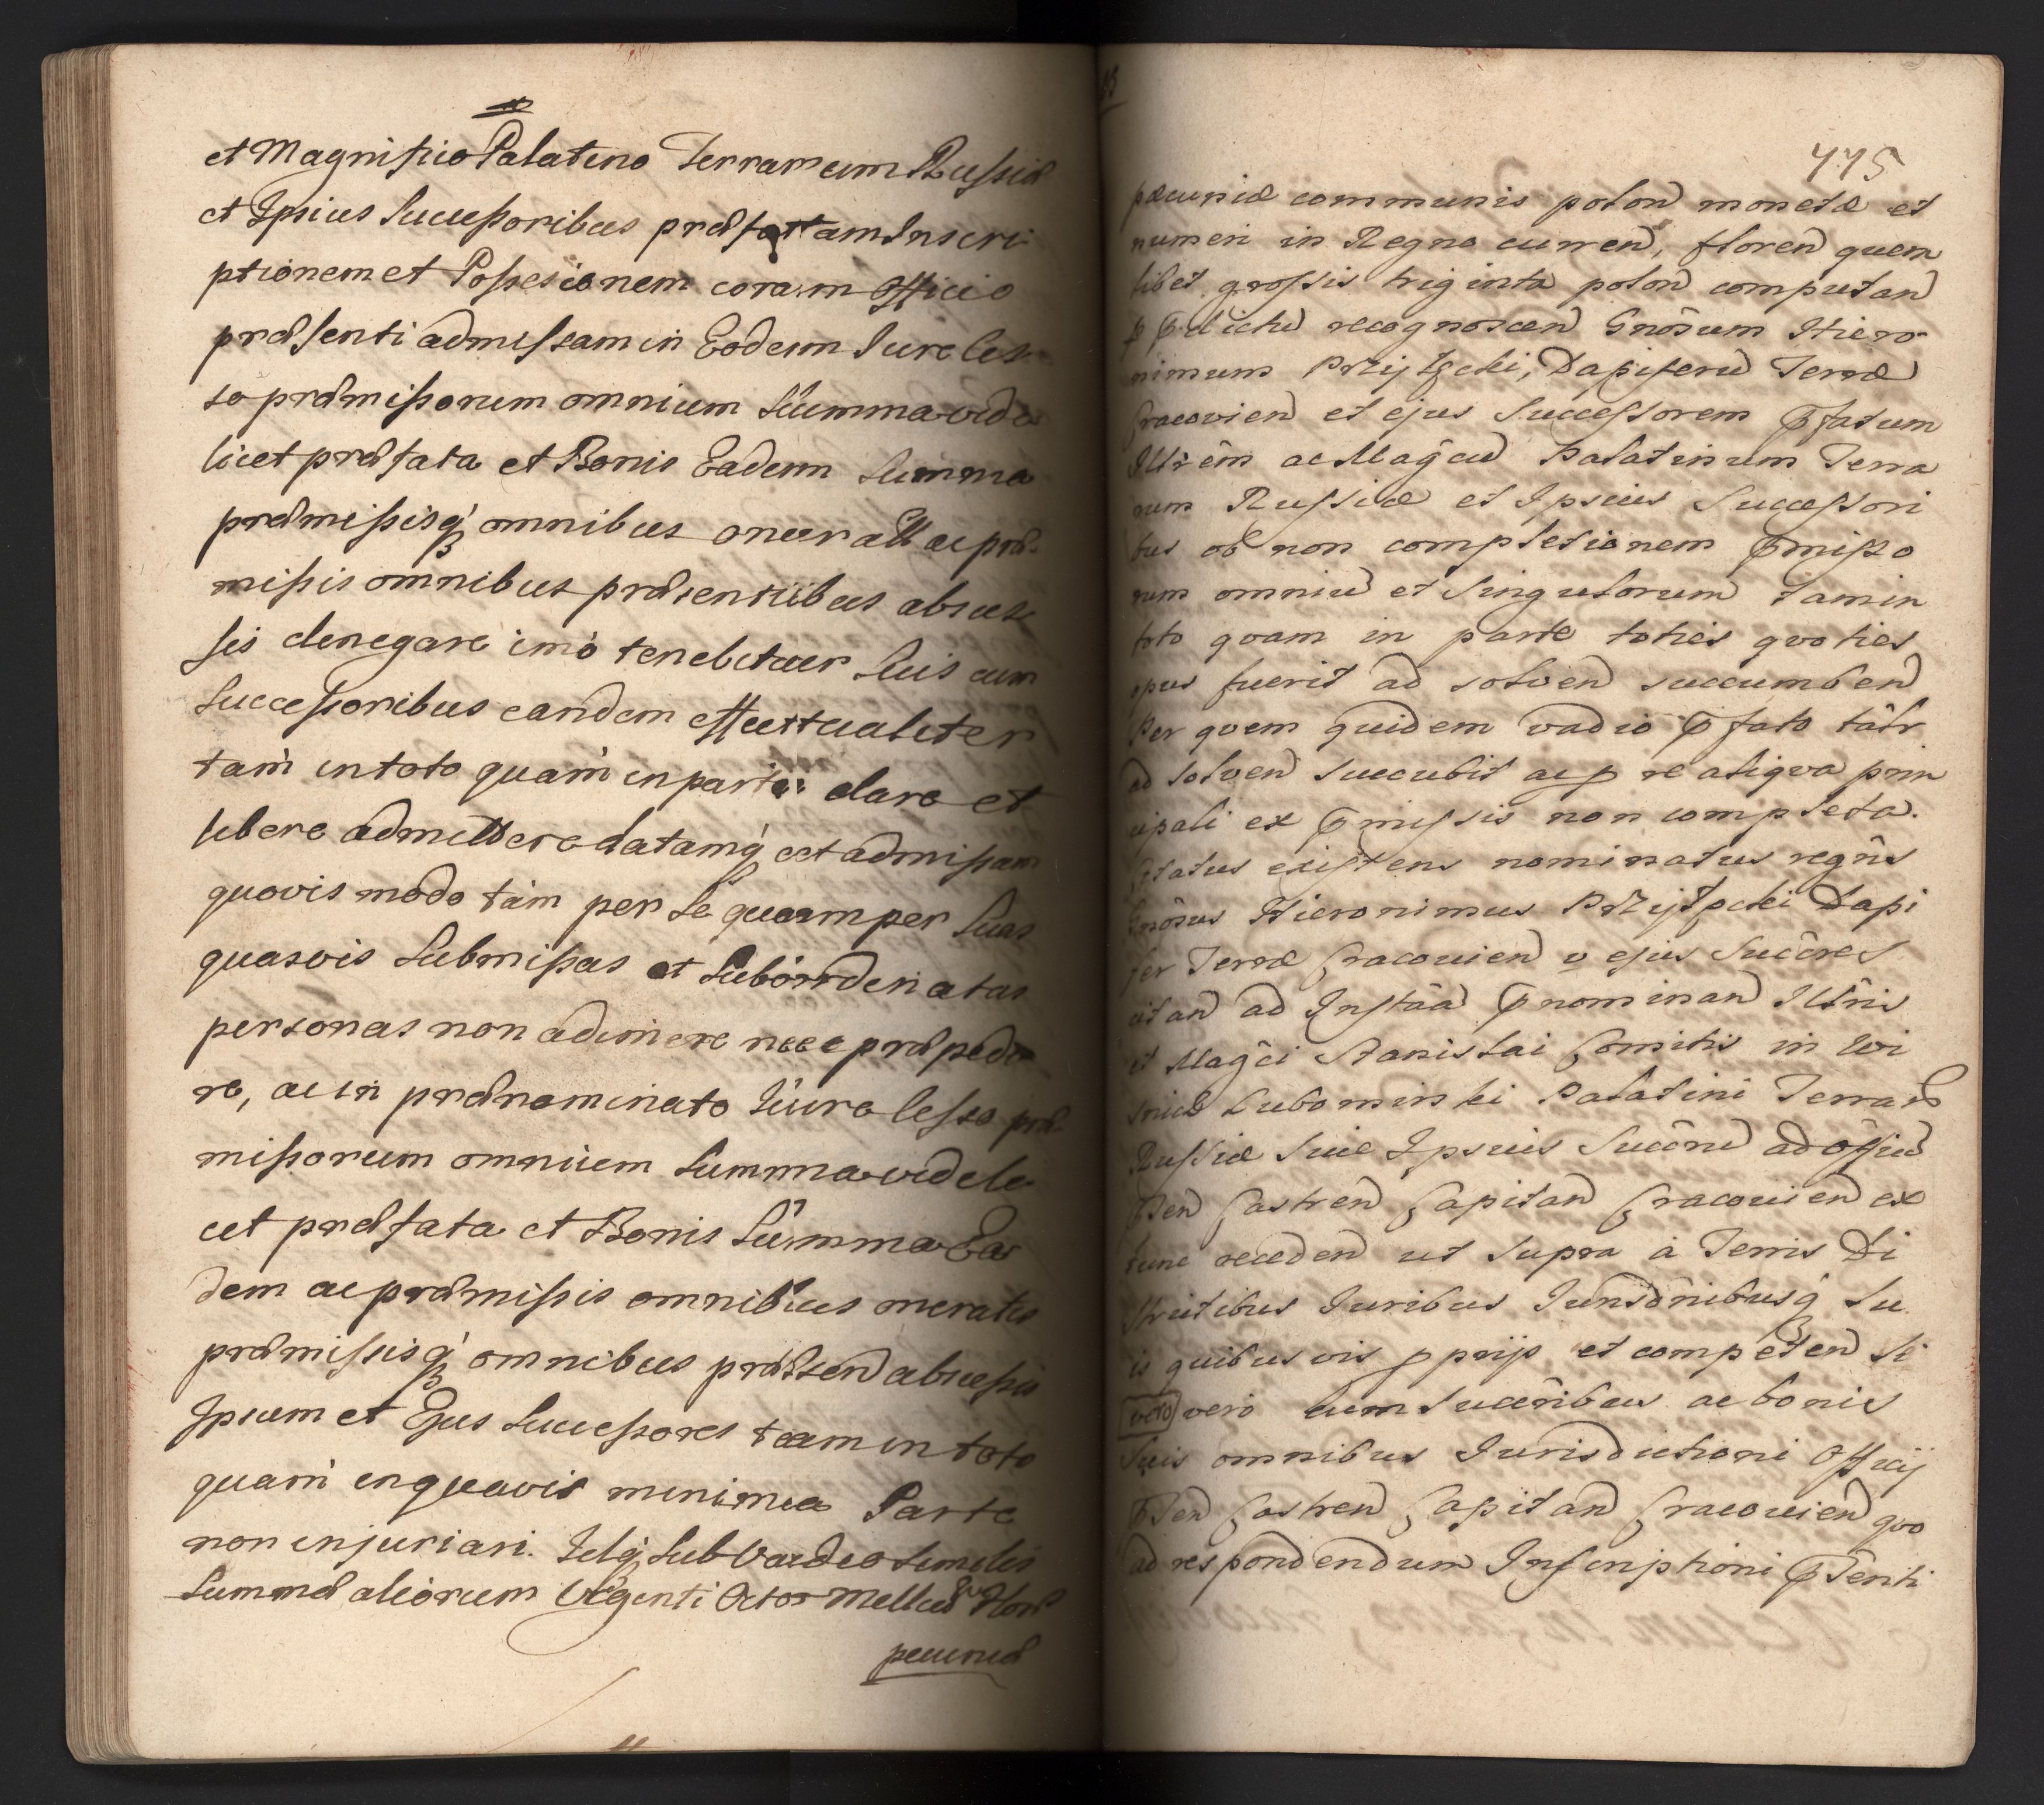 et Magnifico Palatino Terrarum Russiæ
et Ipsius Successoribus præfattam Inscri
ptionem et Possesionem coram Officio
præsenti admissam in Eodem Jure les
so præmissorum omnium Summa vide
licet præfata et Bonis Eadem Summa
præmissisq́ omnibus oneratt ac præ
missis omnibus præsentiibus absces
sis denegare imò tenebitur Suis cum
Successoribus eandem effectualiter
tam̀ in toto quam̀ in parte: clare et
libere admittere datamq́ et admissam
quovis modo tám per Se quam per Suas
quasvis Submissas et Subordenatas
personas non adimere nece præpedi
re, ac in prænominato Jure lesso præ
missorum omnium Summa videle
cet præfata et Bonis Summa Ea
dem ac præmissis omnibus oneratis
præmissisq́ omnibus præsend abscessis
Ipsum et Ejus Successores tam in toto
quam̀ in quavis minima Parte
non injuriari. Idq́ Sub Vadeo Simelis
Summæ aliorum Vigenti Octo Melleũ Flor
pecuniæ
775
pæcuniæ communis polon monetæ et
numeri in Regno curren, floren quem
libet grossis triginta polon computan
p pdictũ recognoscen Gnõsum Hiero
nimum Przyłęcki, Dapiferũ Terræ
Cracovien et ejus Successorem pfatum
Illrẽm ac Magcũ Palatinum Terra
rum Russiæ et Ipsius Successori
bus ob non completionem pmisso
rum omniũ et Singulorum tam in
toto quam in parte toties quoties
opus fuerit ad solven succumben
Per quem quidem vadio pfato tãlr
ad solven succubit ac p re aliqva prin
cipali ex pmissis non completa.
Citatus existens nominatus regñs
Gnõsus Hieronimus Przyłęcki Dapi
fer Terræ Cracovien v ejus Succres
citan ad Instãa pnominan Illris
et Magci Stanislai Comitis in Wi
snicz Lubomirski Palatini Terrar
Russiæ Sive Ipsius Succorũ ad Offiũ
psen Castren Capitan Cracovien ex
tunc receden ut Supra à Terris Di
strictibus Juribus Jurisdnibusq́ Su
is quibusvis pprijs et competen Se
vero vero cum Succribus ac bonis
Suis omnibus Jurisdictioni Officij
psen Castren Capitan Cracovien quo
ad respondendum Inscriptioni psenti